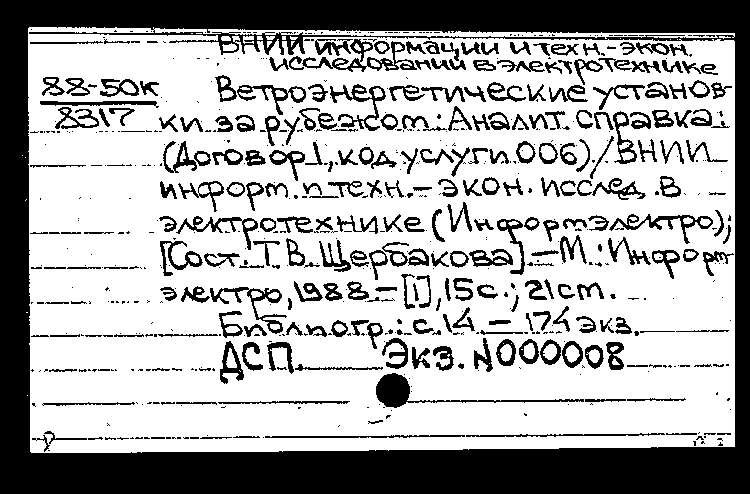 ВНИИ информации и техн.-экон.
исследований в электротехнике
88-50к
8317
Ветроэнергетические установ-
ки за рубежом: Аналит. справка:
(Договор 1, код услуги 006)/ВНИИ
информ. и техн.-экон. исслед. в
электротехнике (Информэлектро);
[Сост. Т.В. Щербакова].-М.: Информ-
электро, 1988.-[1], 15с.; 21см.
Библиогр.: с.14. - 174 экз.
ДСП. Экз. N000008